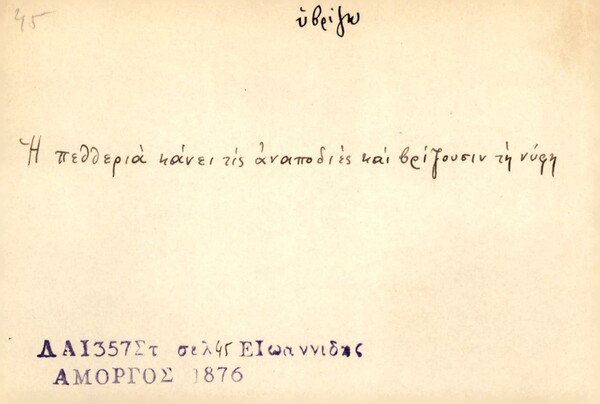 45
ὑβρίζω
Ἡ πεθθεριὰ κάνει τὶς ἀναποδιὲς καὶ βρίζουσιν τὴ νύφη
ΛΑ1357Στ σελ45 ΕΙωαννιδης
ΑΜΟΡΓΟΣ 1876